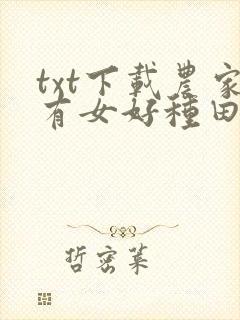 txt下載農家
有女好種田
哲密葉